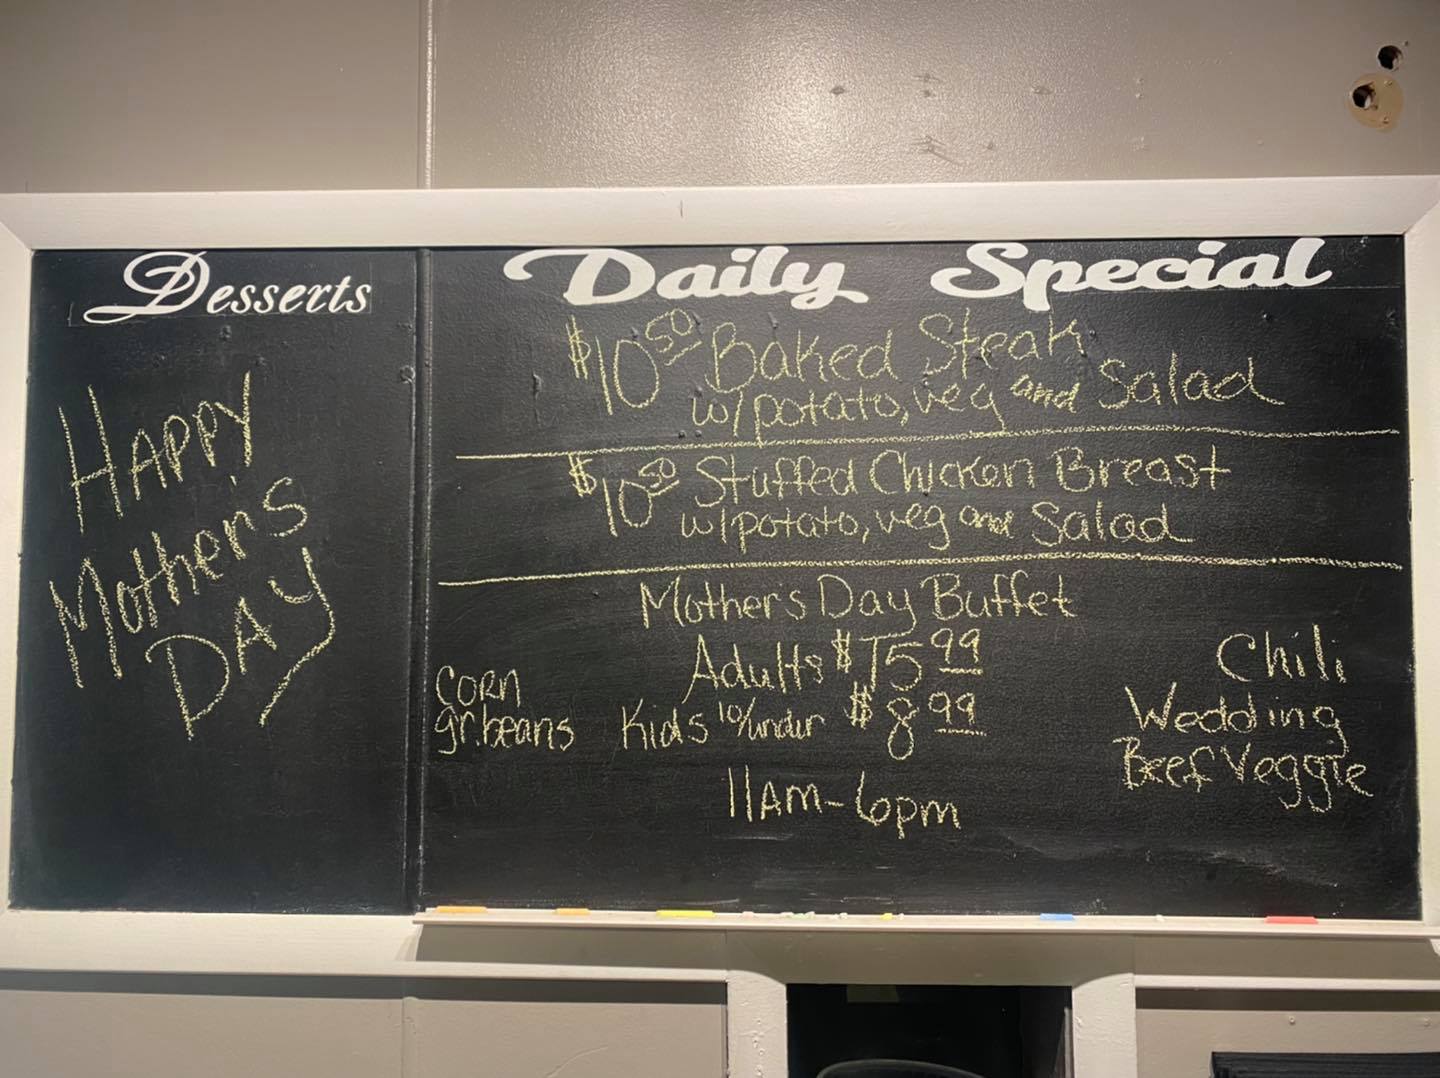 Desserts
HAPPY
Mother's
DAY
Daily Special
$10.50 Baked Steak
w/potato, veg and Salad
$10.50 Stuffed Chicken Breast
w/potato, veg and Salad
Mothers Day Buffet
Adults $15.99
Kids 10/under $8.99
11AM-6pm
CORN
gr. beans
Chili
Wedding
Beef Veggie